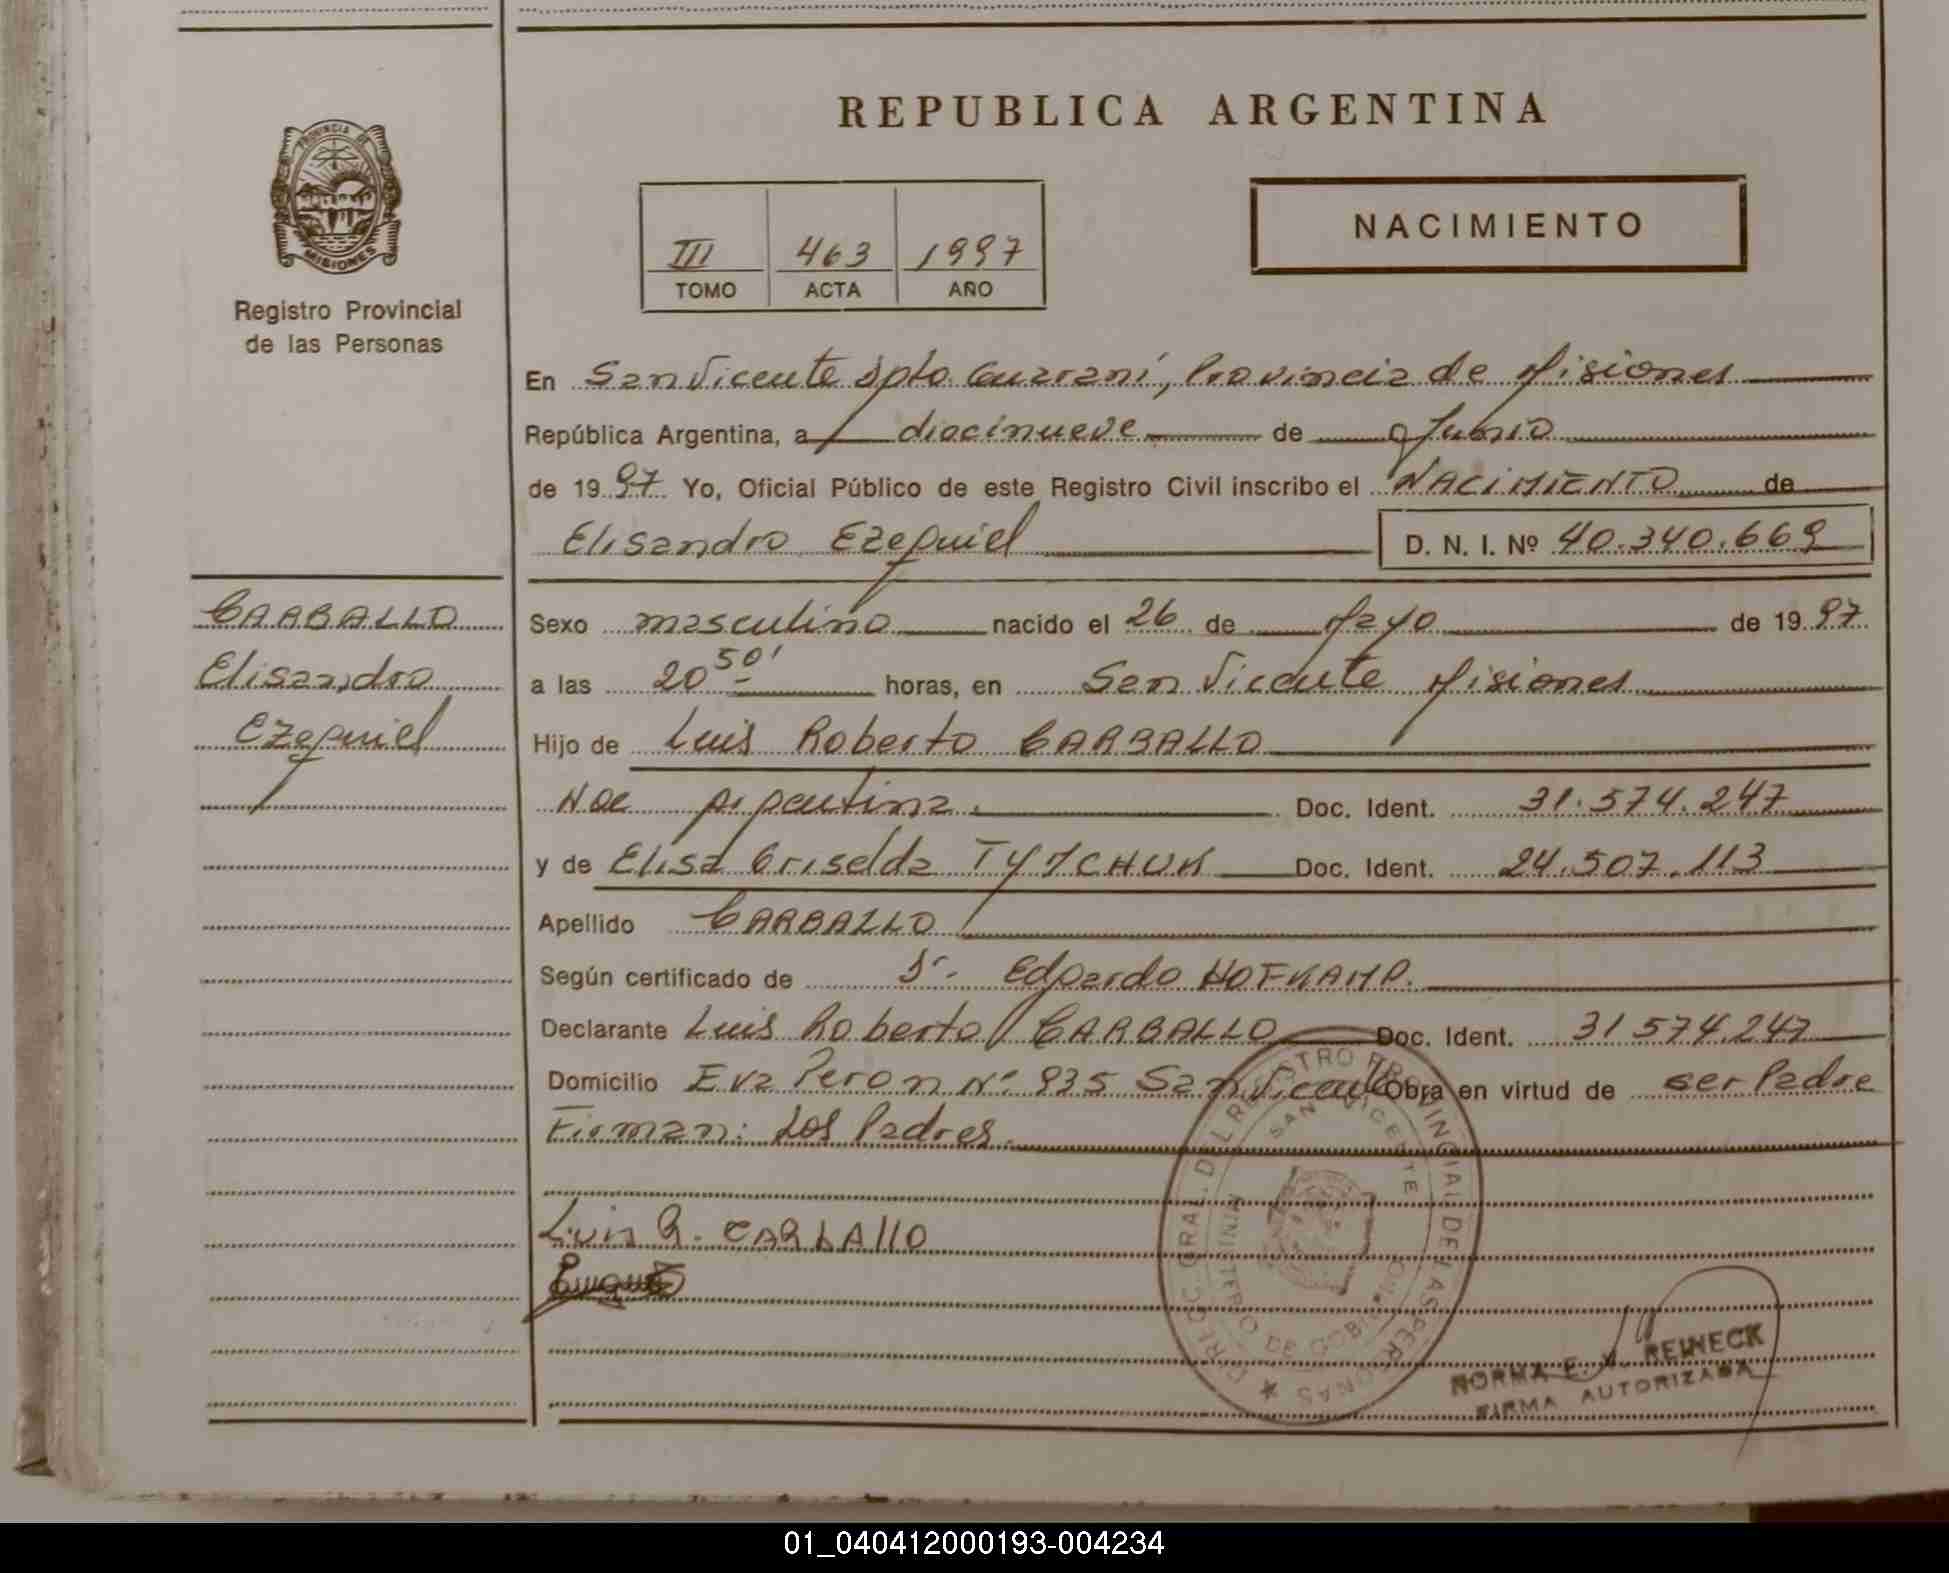 REPUBLICA ARGENTINA
PROVINCIA DE MISIONES
Registro Provincial
de las Personas
III 463 1997
TOMO ACTA AÑO
NACIMIENTO
En San Vicente Dpto. Guaraní, Provincia de Misiones
República Argentina, a diecinueve de Junio
de 1997 Yo, Oficial Público de este Registro Civil inscribo el NACIMIENTO de
Elisandro Ezequiel D. N. I. Nº 40.340.669
CARBALLO
Elisandro
Ezequiel
Sexo masculino nacido el 26 de Mayo de 1997
a las 20 50' horas, en San Vicente Misiones
Hijo de Luis Roberto CARBALLO
Nac Argentina. Doc. Ident. 31.574.247
y de Elisa Griselda TYTCHUK Doc. Ident. 24.507.113
Apellido CARBALLO
Según certificado de Dr. Edgardo HOFKAMP.
Declarante Luis Roberto CARBALLO Doc. Ident. 31574.247
Domicilio Eva Peron Nº 935 San Vicente Obra en virtud de ser Padre
Firman: Los Padres.
Luis R. CARBALLO
DIREC. GRAL. DEL REGISTRO PROVINCIAL DE LAS PERSONAS
SAN VICENTE
MINISTERIO DE GOBIERNO
NORMA E. V. REINECK
FIRMA AUTORIZADA
01_040412000193-004234